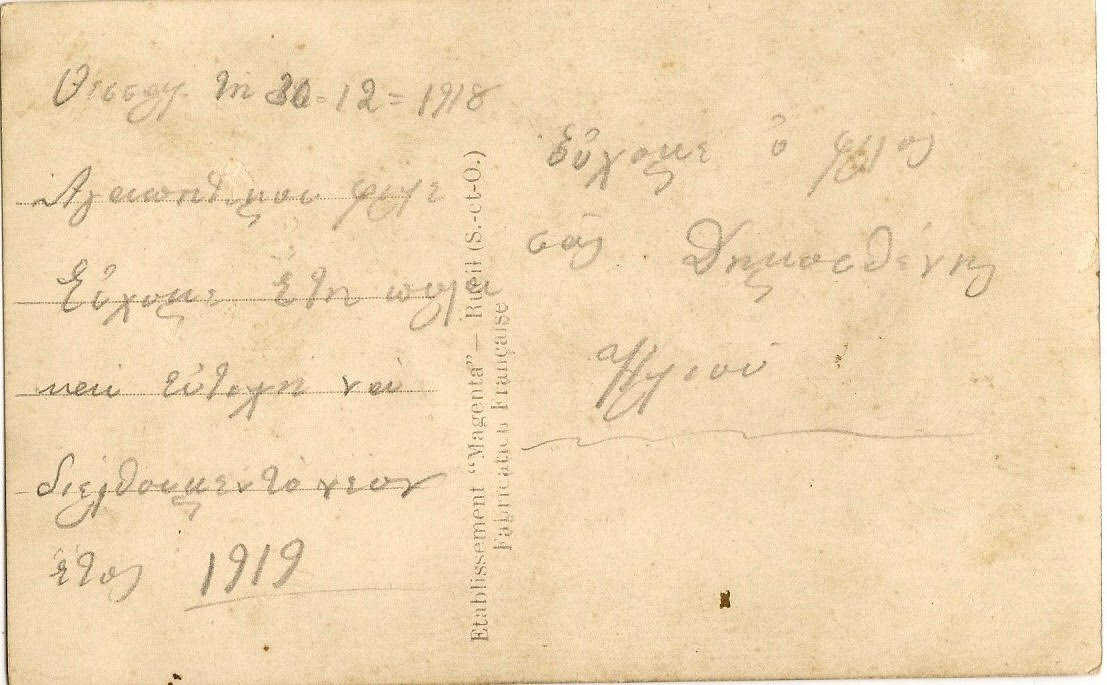 Θεσσλ/. τη 30-12=1918
Αγαπητέ μου φίλε
Εὔχομε ἔτη πολλα
και εὐτυχη να
διελθουμεν το νεον
ἔτος 1919
Εὔχομε ὁ φίλος
σας Δημοσθένης
Etablissement "Magenta" — Rueil (S.-et-O.)
Fabrication Française